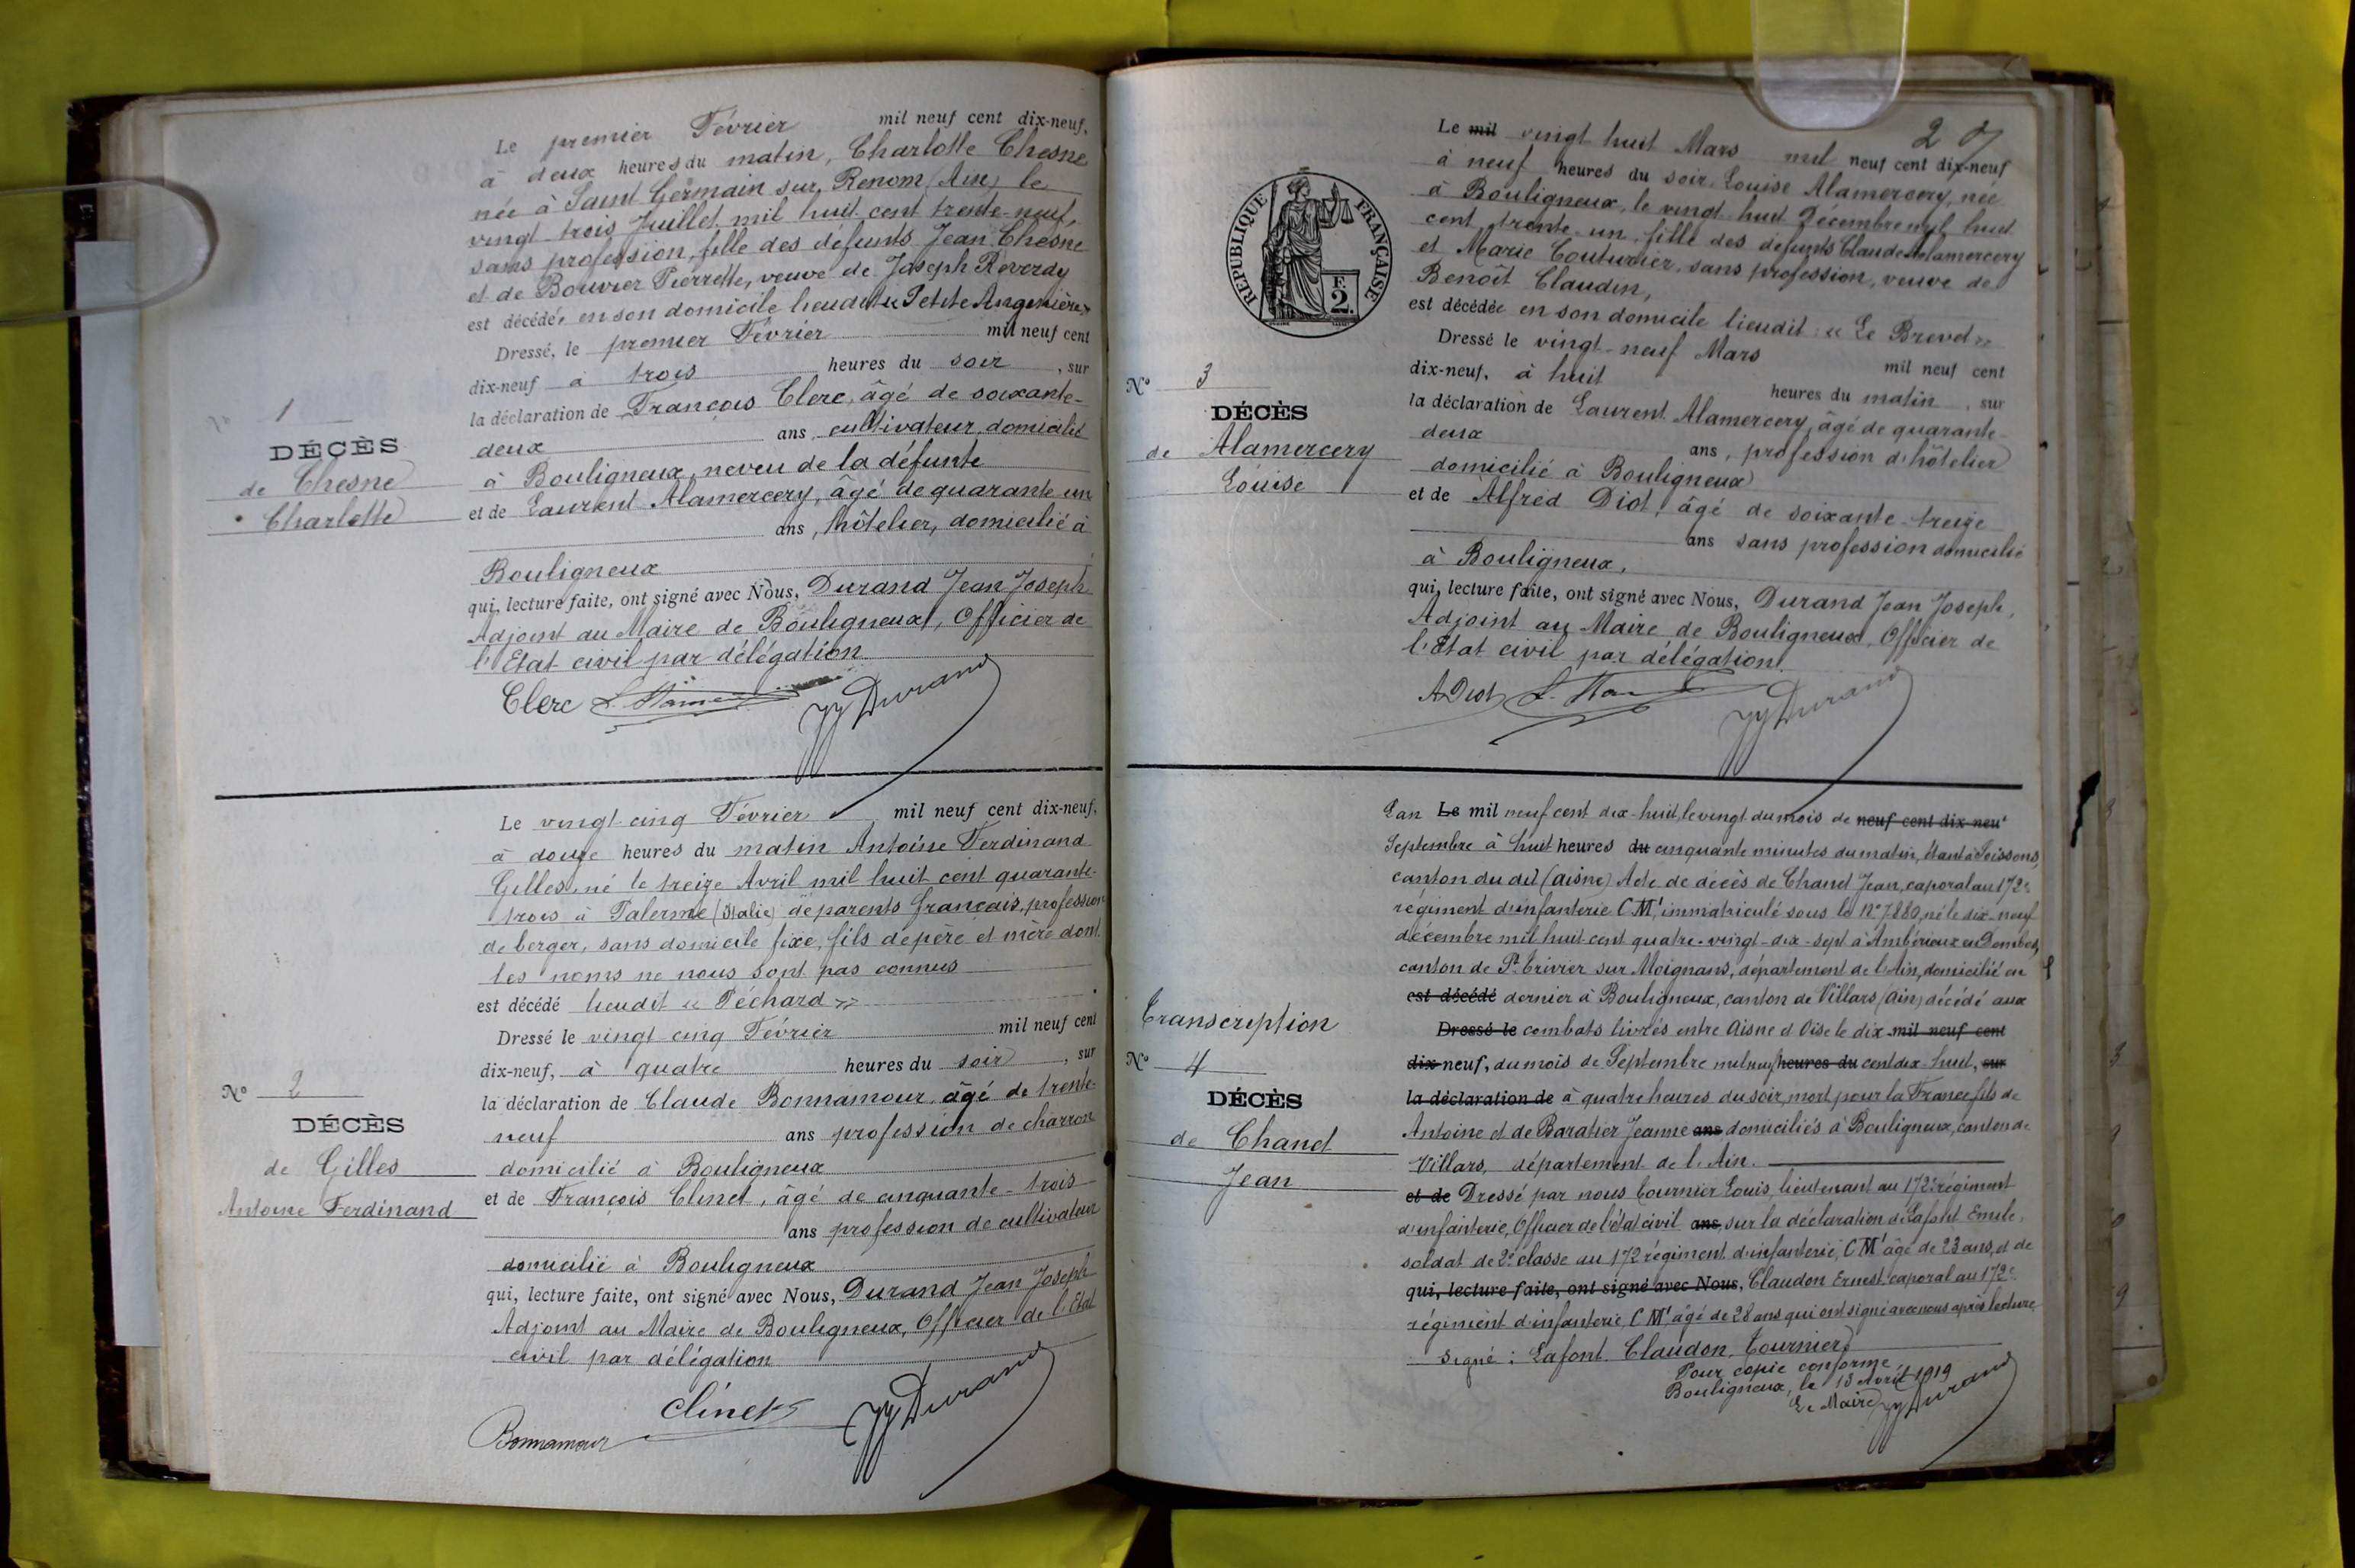 Le premier Février mil neuf cent dix-neuf,
à deux heures du matin, Charlotte Chesne
née à Saint Germain sur Renom (Ain) le
vingt-trois Juillet mil huit cent trente-neuf,
sans profession, fille des défunts Jean Chesne
et de Bouvier Pierrette, veuve de Joseph Reverdy
est décédée en son domicile lieudit « Petite
Dressé, le premier Février mil neuf cent
dix-neuf à trois heures du soir, sur
la déclaration de François Clerc, âgé de soixante-
deux ans, cultivateur, domicilié
à Bouligneux, neveu de la défunte
et de Laurent Alamercery, âgé de quarante un
ans, hôtelier, domicilié à
Bouligneux
qui, lecture faite, ont signé avec Nous, Durand Jean Joseph
Adjoint au Maire de Bouligneux, Officier de
l'Etat civil par délégation
Clerc JJ Durand
N° 1
DÉCÈS
de Chesne
Charlotte
Le vingt-cinq Février mil neuf cent dix-neuf,
à douze heures du matin Antoine Ferdinand
Gilles, né le treize Avril mil huit cent quarante-
trois à Palerme (Italie) de parents français, profession
de berger, sans domicile fixe, fils de père et mère dont
les noms ne nous sont pas connus
est décédé lieudit « Péchard »
Dressé le vingt-cinq Février mil neuf cent
dix-neuf, à quatre heures du soir, sur
la déclaration de Claude Bonnamour, âgé de trente-
neuf ans profession de charron
domicilié à Bouligneux
et de François Clinet, âgé de cinquante-trois
ans profession de cultivateur
domicilié à Bouligneux
qui, lecture faite, ont signé avec Nous, Durand Jean Joseph
Adjoint au Maire de Bouligneux, Officier de l'Etat
civil par délégation
Bonnamour Clinet JJ Durand
N° 2
DÉCÈS
de Gilles
Antoine Ferdinand
2
RÉPUBLIQUE FRANÇAISE
F.
2.
Le mil vingt huit Mars mil neuf cent dix-neuf
à neuf heures du soir, Louise Alamercery, née
à Bouligneux, le vingt-huit Décembre mil huit
cent trente-un, fille des défunts Claude Alamercery
et Marie Couturier, sans profession, veuve de
Benoît Claudin,
est décédée en son domicile lieudit « Le Brevet »
Dressé le vingt-neuf Mars mil neuf cent
dix-neuf, à huit heures du matin, sur
la déclaration de Laurent Alamercery, âgé de quarante-
deux ans, profession d'hôtelier
domicilié à Bouligneux
et de Alfred Diot, âgé de soixante-treize
ans sans profession domicilié
à Bouligneux,
qui, lecture faite, ont signé avec Nous, Durand Jean Joseph,
Adjoint au Maire de Bouligneux, Officier de
l'Etat civil par délégation.
A Diot JJ Durand
N° 3
DÉCÈS
de Alamercery
Louise
L'an Le mil neuf cent dix-huit, le vingt du mois de neuf cent dix neu
Septembre à huit heures du cinquante minutes du matin, étant à Soissons,
canton du dit (Aisne) Acte de décès de Chanel Jean, caporal au 172e
régiment d'infanterie C M1, immatriculé sous le N° 7.880, né le dix-neuf
décembre mil huit cent quatre-vingt-dix-sept à Ambérieux en Dombes,
canton de St Trivier sur Moignans, département de l'Ain, domicilié en
est décédé dernier à Bouligneux, canton de Villars (Ain) décédé aux
Dressé le combats livrés entre Aisne et Oise le dix mil neuf cent
dix-neuf, du mois de Septembre mil neuf heures du cent dix-huit, sur
la déclaration de à quatre heures du soir, mort pour la France, fils de
Antoine et de Baratier Jeanne ans domiciliés à Bouligneux, canton de
Villars, département de l'Ain.
et de Dressé par nous Tournier Louis, lieutenant au 172e régiment
d'infanterie, Officier de l'état civil ans, sur la déclaration de Lafont Emile,
soldat de 2e classe au 172 régiment d'infanterie, C M1 âgé de 23 ans, et de
qui, lecture faite, ont signé avec Nous, Claudon Ernest caporal au 172e
régiment d'infanterie, C M1 âgé de 28 ans qui ont signé avec nous après lecture
Signé : Lafont. Claudon. Tournier
Pour copie conforme
Bouligneux, le 13 Avril 1919
Le Maire JJ Durand
Transcription
N° 4
DÉCÈS
de Chanel
Jean